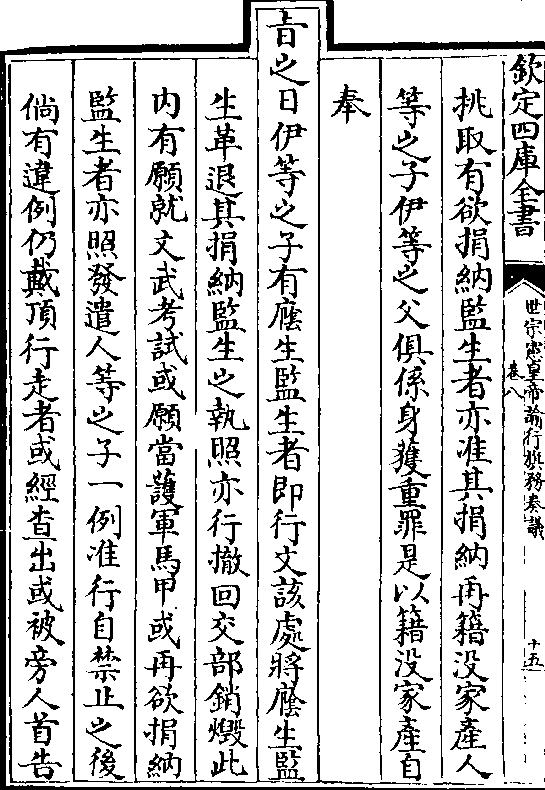 欽定四庫全書
世宗憲皇帝諭行旗務奏議
卷八
十五
挑取有欲捐納監生者亦准其捐納再籍没家產人
等之子伊等之父俱係身獲重罪是以籍没家產自
奉
旨之日伊等之子有廕生監生者即行文該處將廕生監
生革退其捐納監生之執照亦行撤回交部銷燬此
内有願就文武考試或願當護軍馬甲或再欲捐納
監生者亦照發遣人等之子一例准行自禁止之後
倘有違例仍戴頂行走者或經查出或被旁人首告